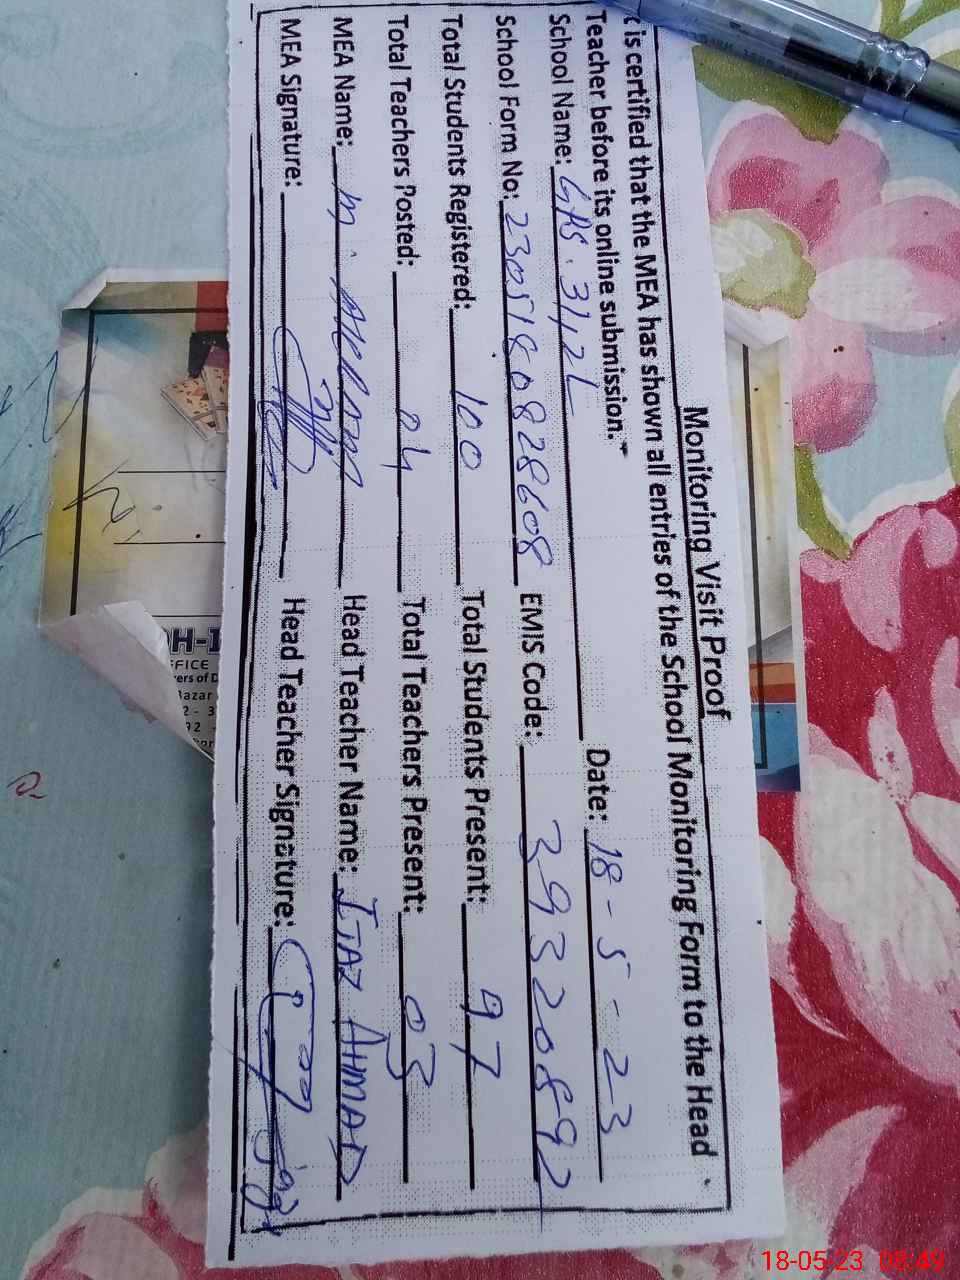 Monitoring Visit Proof
t is certified that the MEA has shown all entries of the School Monitoring Form to the Head
Teacher before its online submission."
School Name: GPS. 31,2L Date: 18-5-23
School Form No: 2305180828608 EMIS Code: 39320892
Total Students Registered: 100 Total Students Present: 97
Total Teachers Posted: 04 Total Teachers Present: 03
MEA Name: M. AKRAM Head Teacher Name: IJAZ AHMAD
MEA Signature: Head Teacher Signature:
FFICE
vers of D
Bazar
18-05-23 08:49